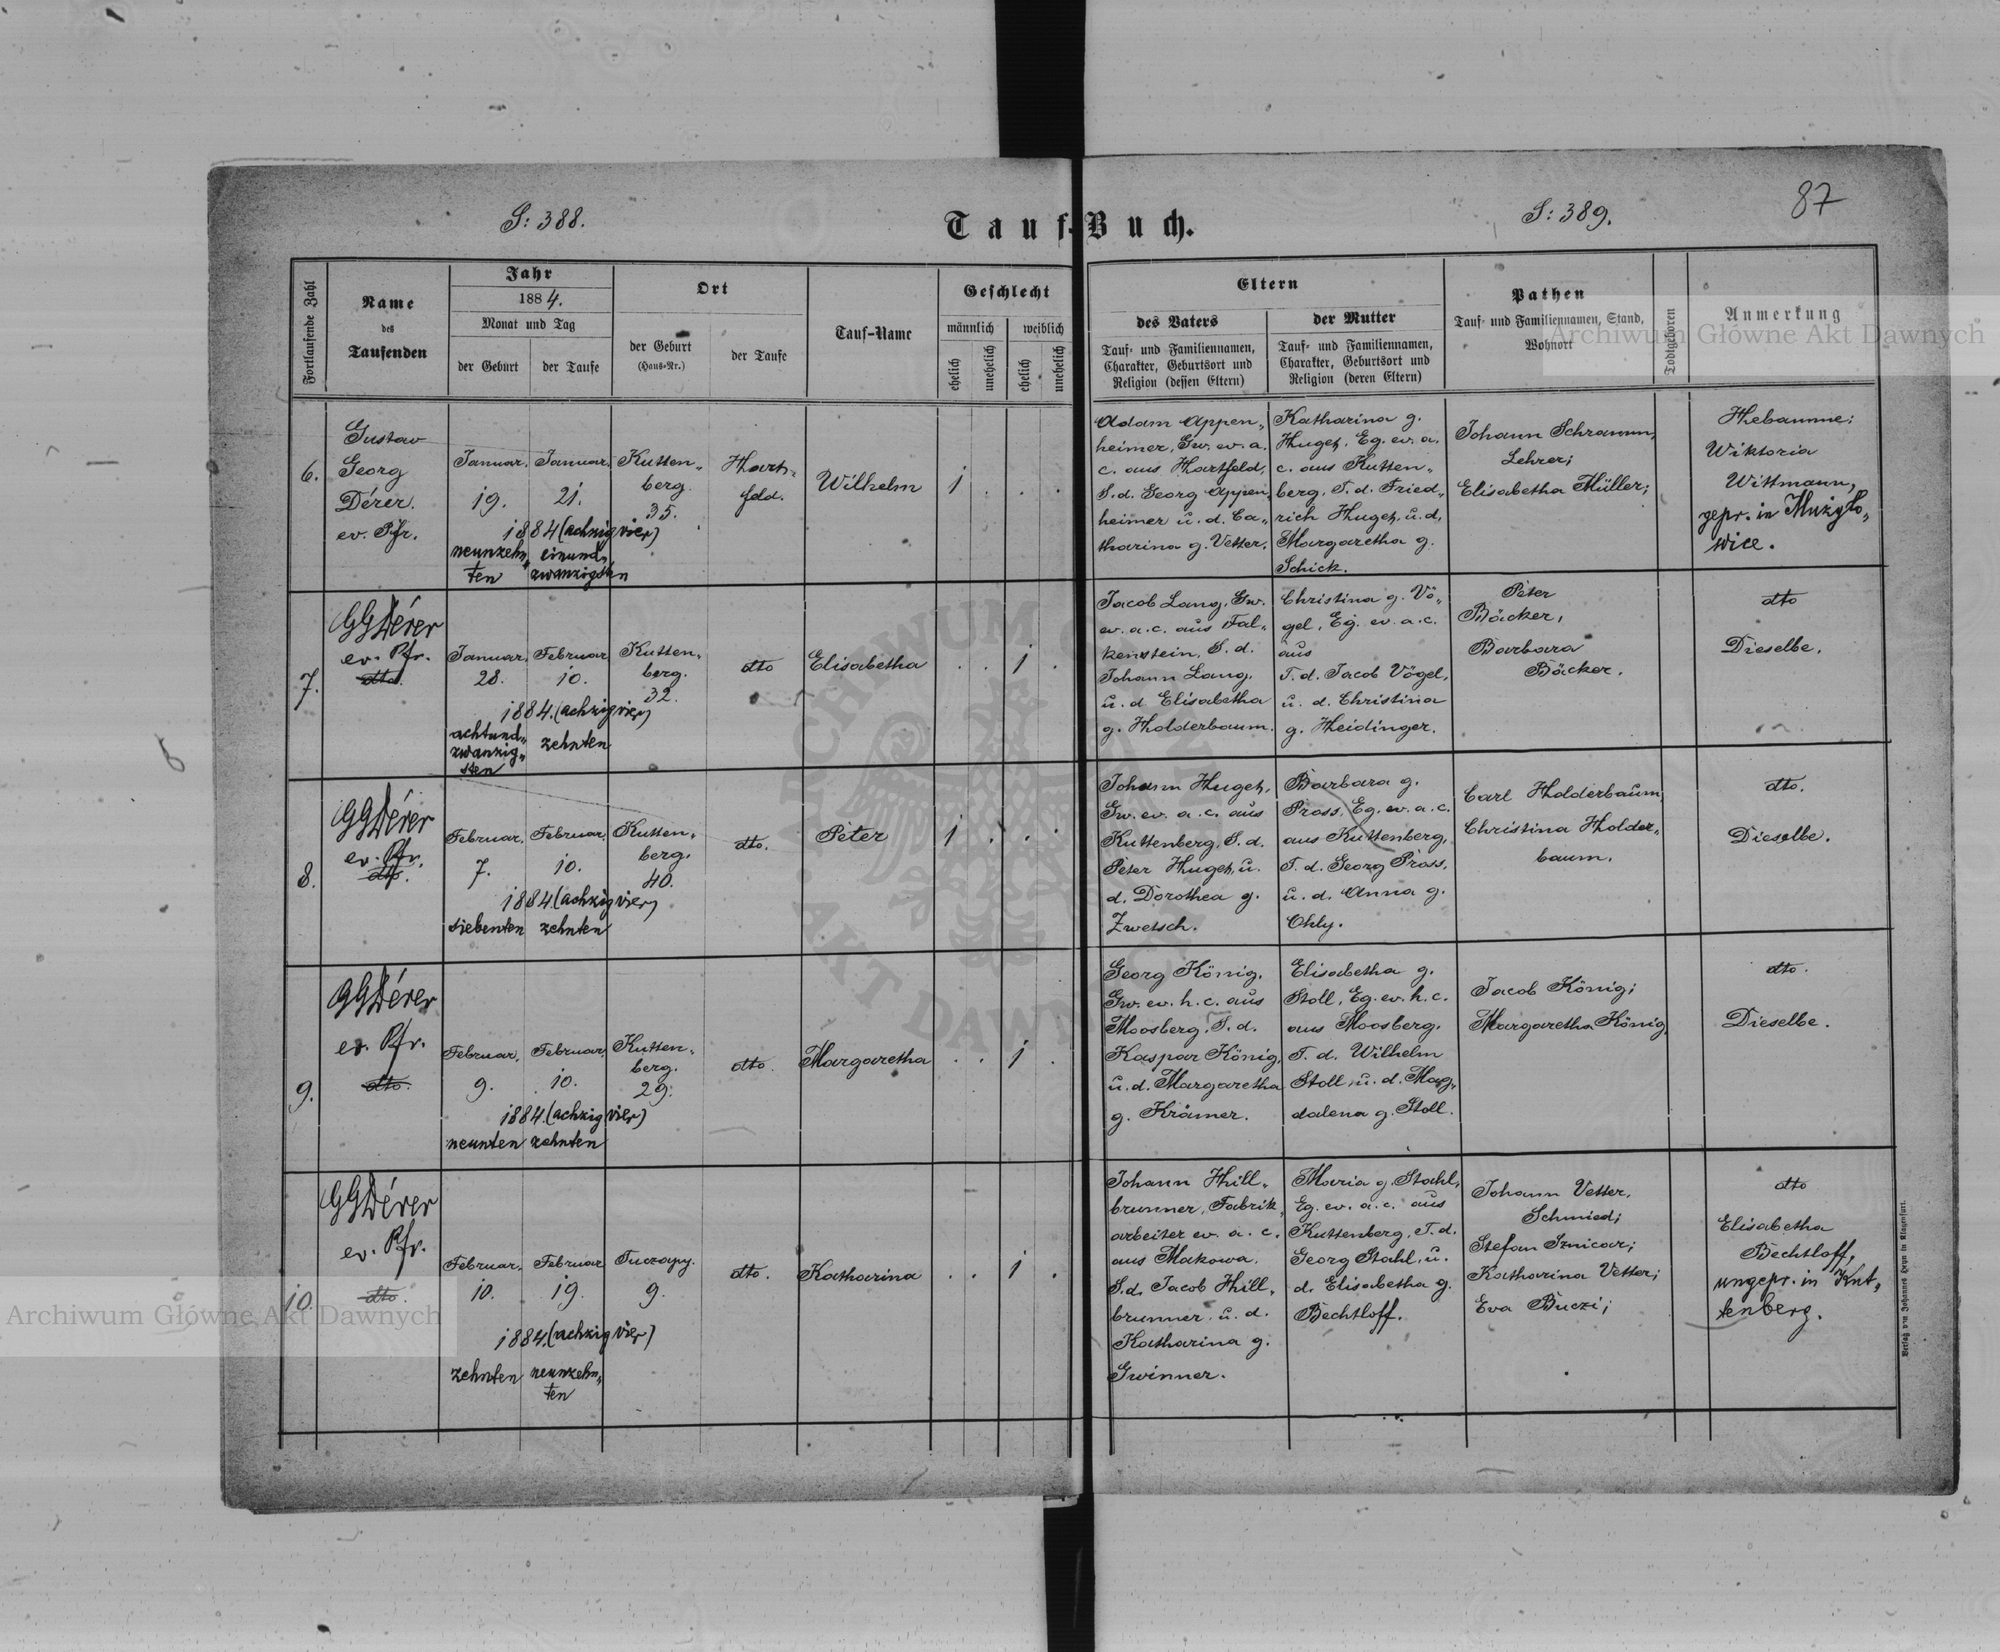 S: 388.
Tauf-Buch.
S: 389.
87
Fortlaufende Zahl
Name
des
Taufenden
Jahr
1884.
Monat und Tag
der Geburt
der Taufe
Ort
der Geburt
(Haus-Nr.)
der Taufe
Tauf-Name
Geschlecht
männlich
weiblich
ehelich
unehelich
ehelich
unehelich
Eltern
des Vaters
Tauf- und Familiennamen,
Charakter, Geburtsort und
Religion (dessen Eltern)
der Mutter
Tauf- und Familiennamen,
Charakter, Geburtsort und
Religion (deren Eltern)
Pathen
Tauf- und Familiennamen, Stand,
Wohnort
Todtgeboren
Anmerkung
Archiwum Główne Akt Dawnych
6.
Gustav
Georg
Dérer.
ev. Pfr.
Januar.
19.
Januar.
21.
1884 (achzig vier)
neunzehn„
ten
einund„
zwanzigsten
Kutten„
berg.
35.
Hart„
feld.
Wilhelm
1 . . .
Adam Appen„
heimer, Gw. ev. a.
c. aus Hartfeld,
S. d. Georg Appen„
heimer u. d. Ca„
tharina g. Vetter.
Katharina g.
Huget, Eg. ev. a.
c. aus Kutten„
berg, T. d. Fried„
rich Huget, u. d.
Margaretha g.
Schick.
Johann Schramm,
Lehrer;
Elisabetha Müller;
Hebamme:
Wiktoria
Wittmann,
gepr. in Mużyło„
wice.
7.
GGDérer
ev. Pfr.
dto.
Januar.
28.
Februar.
10.
1884. (achzig vier)
achtund„
zwanzig„
sten
zehnten
Kutten„
berg.
32.
dto
Elisabetha
. . 1 .
Jacob Lang, Gw.
ev. a. c. aus Fal„
kenstein, S. d.
Johann Lang.
u. d Elisabetha
g. Holderbaum.
Christina g. Vö„
gel, Eg. ev. a. c.
aus
T. d. Jacob Vögel,
u. d. Christina
g. Heidinger.
Peter
Bäcker,
Barbara
Bäcker.
dto
Dieselbe.
8.
GGDérer
ev. Pfr.
dto.
Februar.
7.
Februar.
10.
1884. (achzig vier)
siebenten
zehnten
Kutten„
berg.
40.
dto.
Peter
1 . . .
Johann Huget,
Gw. ev. a. c. aus
Kuttenberg, S. d.
Peter Huget, u.
d. Dorothea g.
Zwetsch.
Barbara g.
Pross, Eg. ev. a. c.
aus Kuttenberg,
T. d. Georg Pross,
u. d. Anna g.
Ohly.
Carl Holderbaum,
Christina Holder„
baum.
dto.
Dieselbe.
9.
GGDérer
ev. Pfr.
dto.
Februar.
9.
Februar.
10.
1884. (achzig vier)
neunten
zehnten
Kutten„
berg.
29.
dto.
Margaretha
. . 1 .
Georg König,
Gw. ev. h. c. aus
Moosberg, S. d.
Kaspar König,
u. d. Margaretha
g. Krämer.
Elisabetha g.
Stoll, Eg. ev. h. c.
aus Moosberg.
T. d. Wilhelm
Stoll, u. d. Mag„
dalena g. Stoll.
Jacob König;
Margaretha König,
dto.
Dieselbe.
10.
GGDérer
ev. Pfr.
dto.
Februar.
10.
Februar
19.
1884. (achzig vier)
zehnten
neunzehn„
ten
Tuczapy.
9.
dto.
Katharina
. . 1 .
Johann Hill„
brunner, Fabrik„
arbeiter ev. a. c.
aus Makowa.
S. d. Jacob Hill„
brunner, u. d.
Katharina g.
Gwinner.
Maria g. Stahl,
Eg. ev. a. c. aus
Kuttenberg, T. d.
Georg Stahl, u.
d. Elisabetha g.
Bechtloff.
Johann Vetter,
Schmied;
Stefan
Katharina Vetter;
Eva Buczi;
dto
Elisabetha
Bechtloff,
ungepr. in Kut„
tenberg.
Archiwum Główne Akt Dawnych
Verlag von Johannes Heyn in Klagenfurt.
ARCHIWUM
AKT DAWNYCH